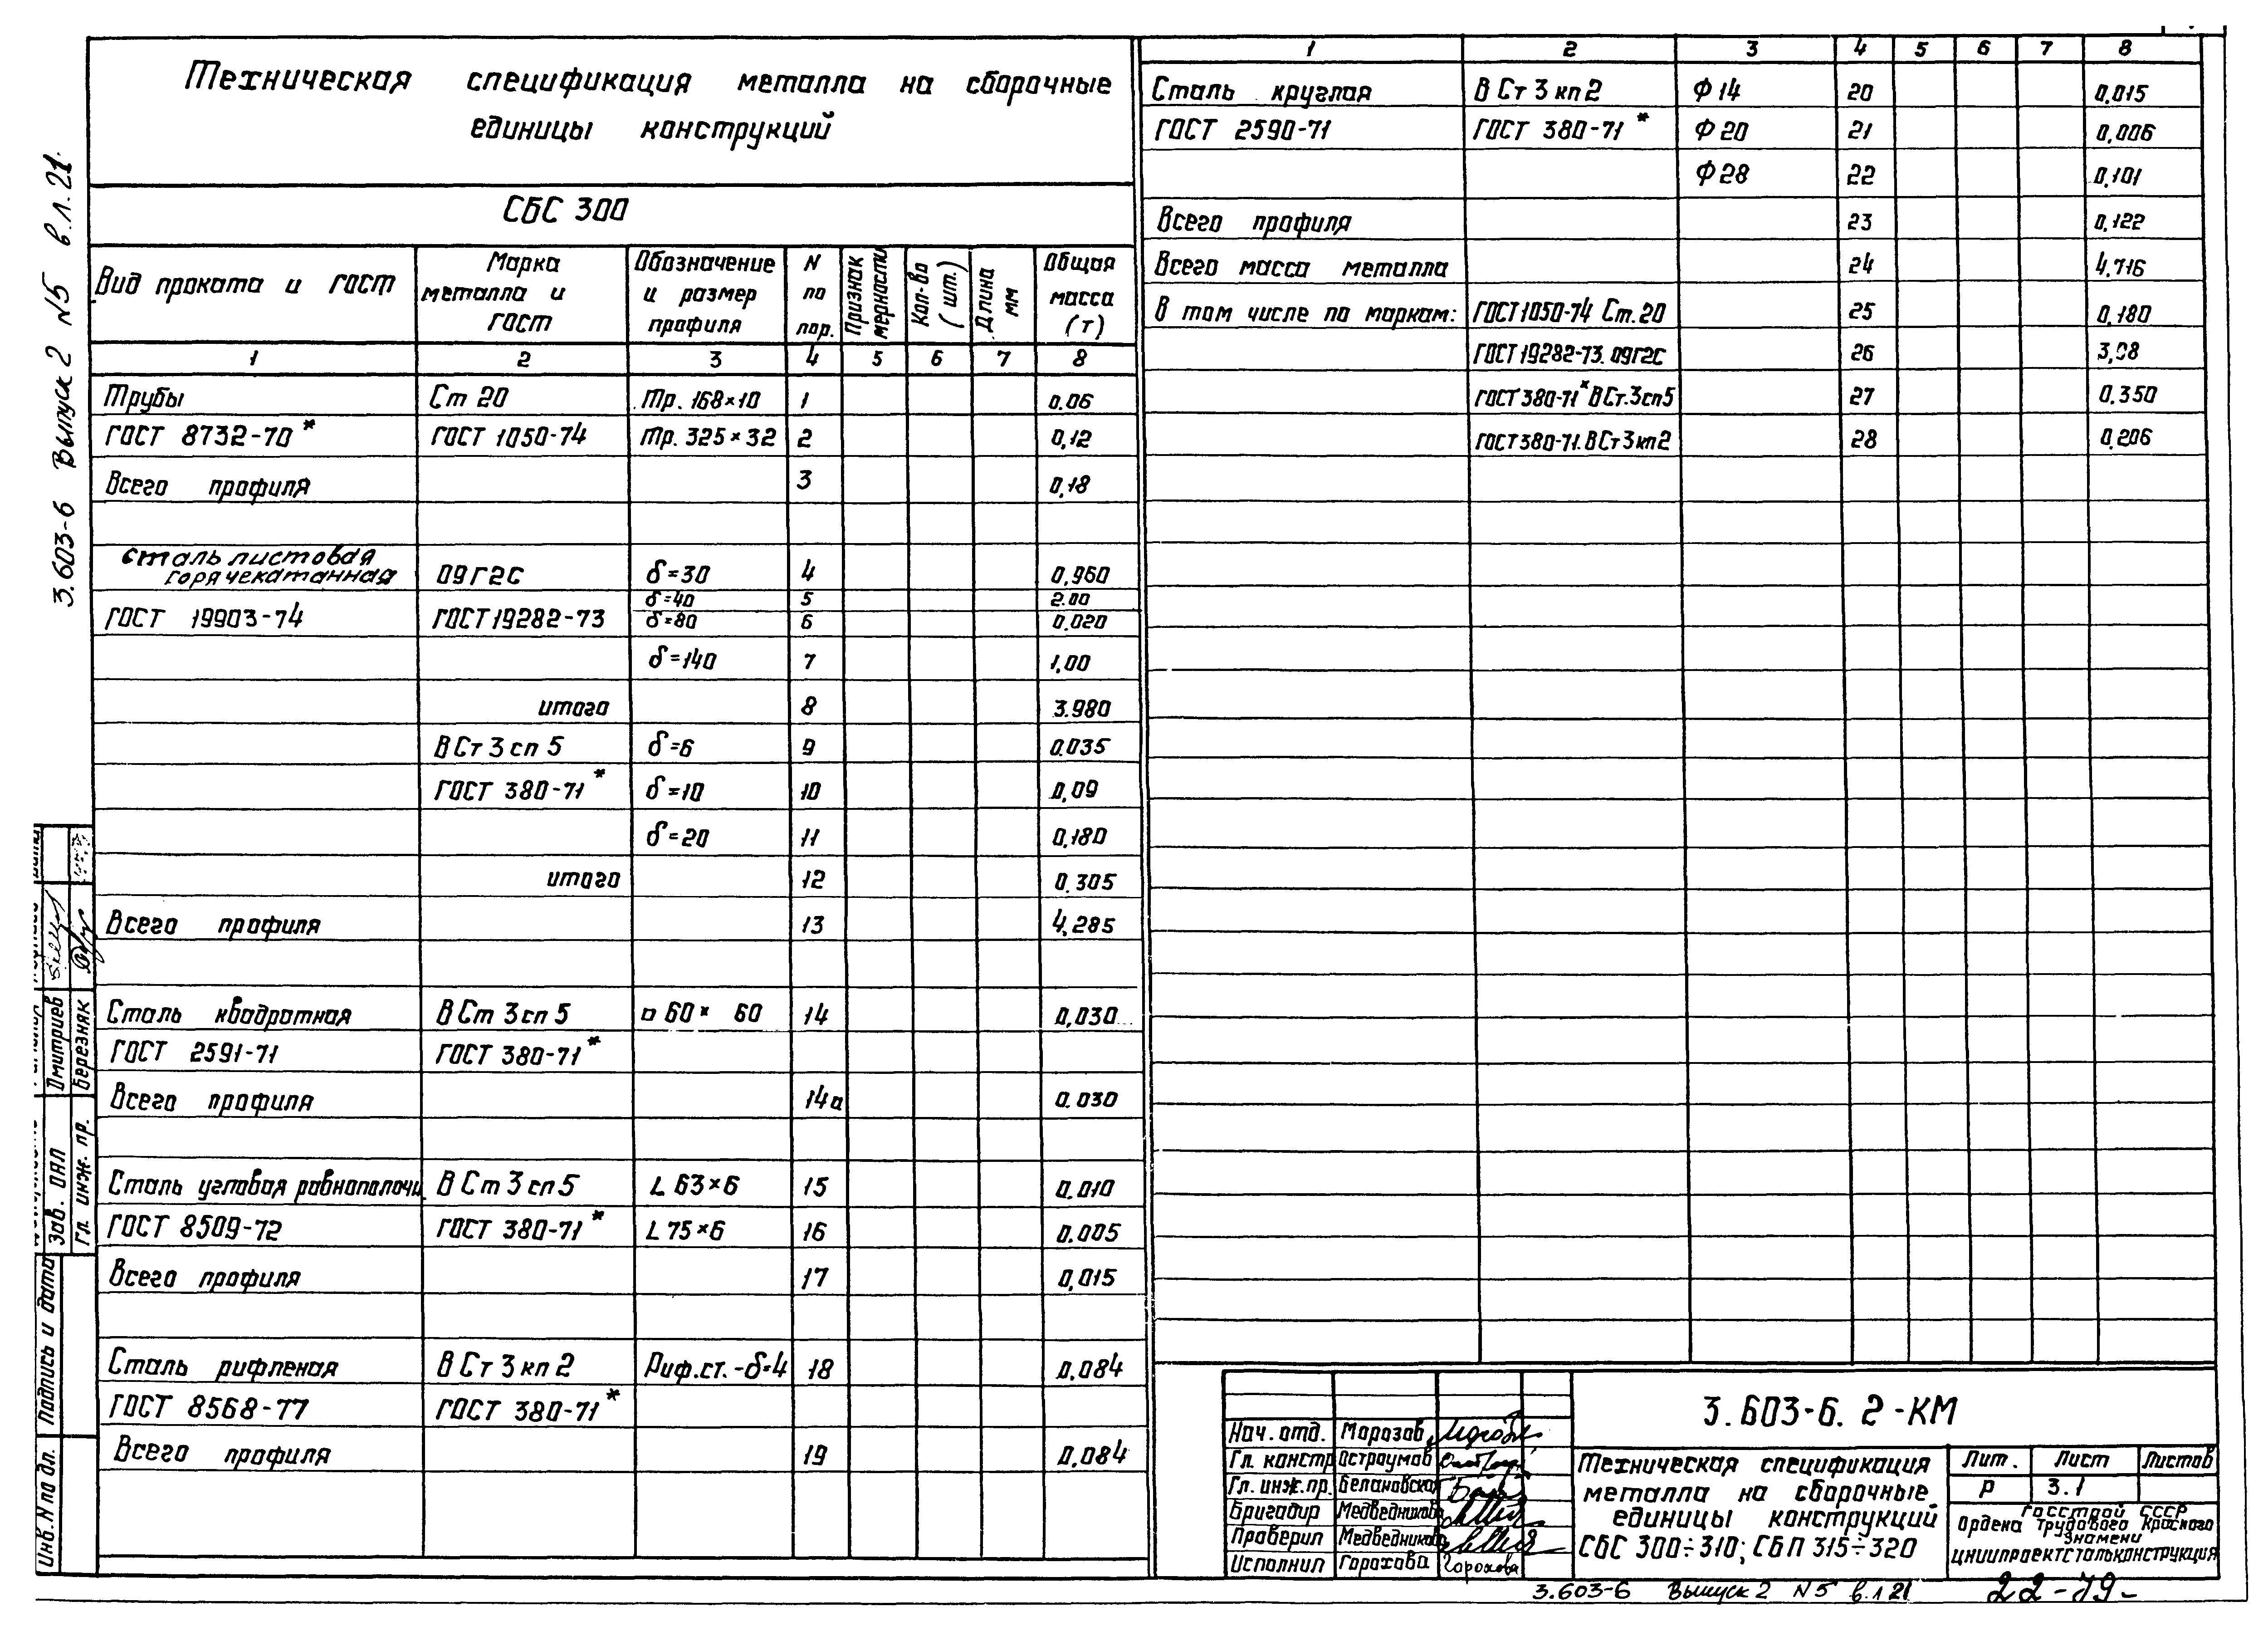 Техническая спецификация металла на сборочные
единицы конструкций
СБС 300
Вид проката и ГОСТ
Марка металла и ГОСТ
Обозначение и размер профиля
N по пор.
Признак мерности
Кол-во (шт.)
Длина мм
Общая масса (т)
1 2 3 4 5 6 7 8
Трубы Ст 20 Тр. 168×10 1 0.06
ГОСТ 8732-70* ГОСТ 1050-74 Тр. 325×32 2 0,12
Всего профиля 3 0,18
Сталь листовая
горячекатанная 09Г2С δ=30 4 0,960
δ=40 5 2.00
ГОСТ 19903-74 ГОСТ 19282-73 δ=80 6 0,020
δ=140 7 1,00
итого 8 3.980
В Ст 3 сп 5 δ=6 9 0.035
ГОСТ 380-71* δ=10 10 0,09
δ=20 11 0,180
итого 12 0.305
Всего профиля 13 4,285
Сталь квадратная В Ст 3 сп 5 □ 60× 60 14 0,030
ГОСТ 2591-71 ГОСТ 380-71*
Всего профиля 14а 0.030
Сталь угловая равнополочн. В Ст 3 сп 5 L 63×6 15 0.010
ГОСТ 8509-72 ГОСТ 380-71* L 75×6 16 0.005
Всего профиля 17 0,015
Сталь рифленая В Ст 3 кп 2 Риф.ст.-δ=4 18 0,084
ГОСТ 8568-77 ГОСТ 380-71*
Всего профиля 19 0,084
1 2 3 4 5 6 7 8
Сталь круглая В Ст 3 кп 2 Ф 14 20 0,015
ГОСТ 2590-71 ГОСТ 380-71* Ф 20 21 0,006
Ф 28 22 0,101
Всего профиля 23 0,122
Всего масса металла 24 4,716
В том числе по маркам: ГОСТ 1050-74 Ст.20 25 0,180
ГОСТ 19282-73. 09Г2С 26 3,98
ГОСТ 380-71* В Ст.3сп5 27 0.350
ГОСТ 380-71. В Ст 3кп2 28 0,206
3.603-6 Выпуск 2 N5 в.л.21.
Дмитриев
Березняк
Зав. ОАЛ
Гл. инж. пр.
Подпись и дата
Инв. N по дп.
Нач. отд. Морозов
Гл. констр Остроумов
Гл. инж.пр. Белановская
Бригадир Медведников
Проверил Медведников
Исполнил Горохова Горохова
3.603-6. 2-КМ
Техническая спецификация
металла на сборочные
единицы конструкций
СБС 300÷310; СБП 315÷320
Лит. Лист Листов
Р 3.1
Госстрой СССР
Ордена Трудового Красного
Знамени
ЦНИИПРОЕКТСТАЛЬКОНСТРУКЦИЯ
3.603-6 Выпуск 2 N5 в.л 21
22-79-